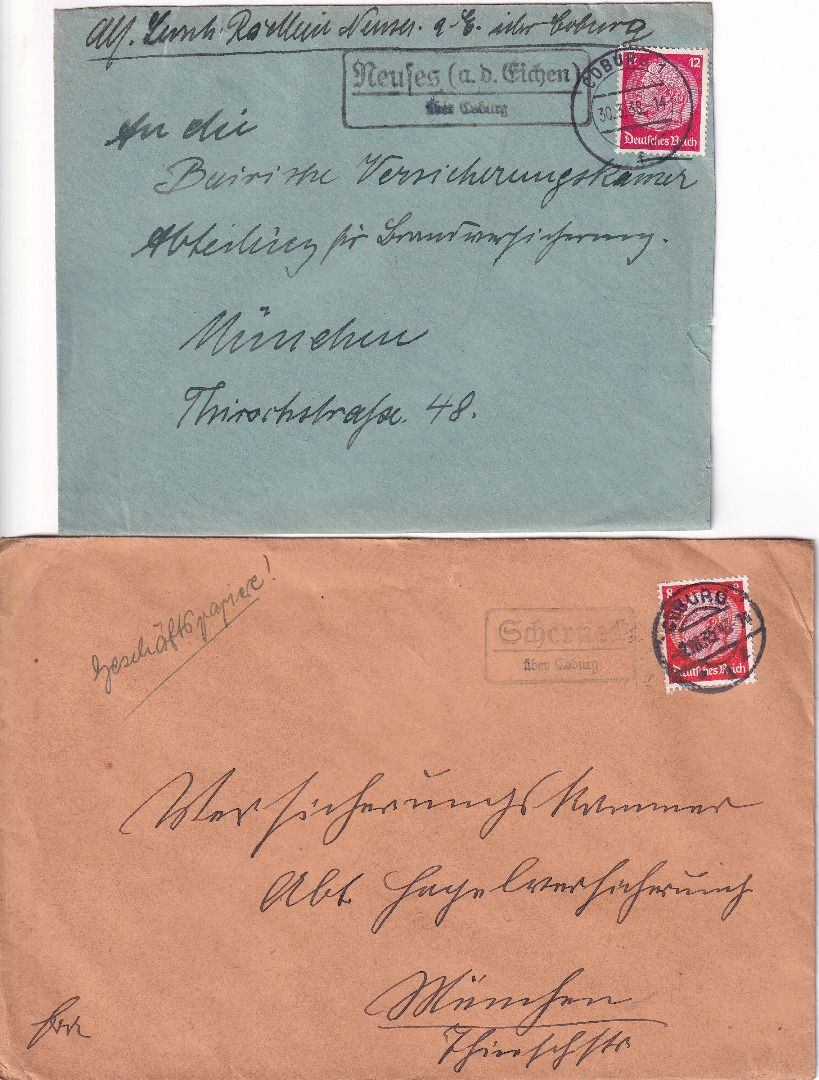 Neuses a. E. über Coburg
Neuses (a. d. Eichen)
über Coburg
COBURG 1
30.3.38.-14
12
Deutsches Reich
An die
Bairische Versicherungskamer
Abteilung für Brandversicherung.
München
Thirschstraße. 48.
Geschäftspapiere!
8
Deutsches Reich
COBURG
über Coburg
Versicherungskammer
Abt. Hagelversicherung
München
Thierschstr